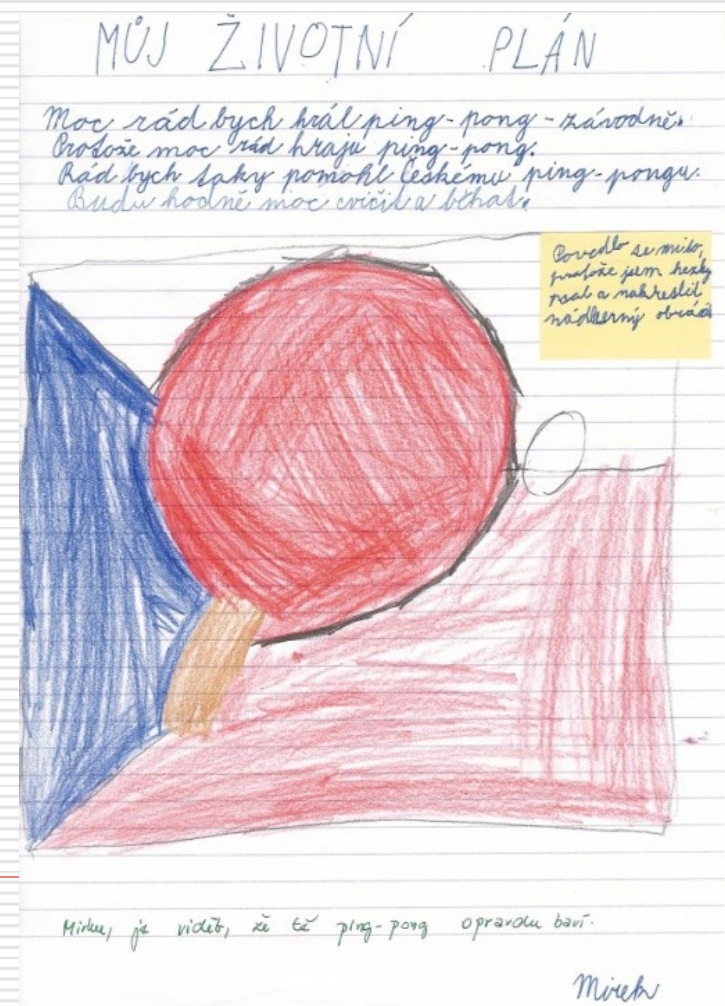 MŮJ ŽIVOTNÍ PLÁN
Moc rád bych hrál ping-pong - závodně.
Protože moc rád hraju ping-pong.
Rád bych taky pomohl Českému ping-pongu.
Budu hodně moc cvičit a běhat.
Povedlo se mi to,
protože jsem hezky
psal a nakreslil
nádherný obrázek
Mirku, je vidět, že tě ping-pong opravdu baví.
Mirek